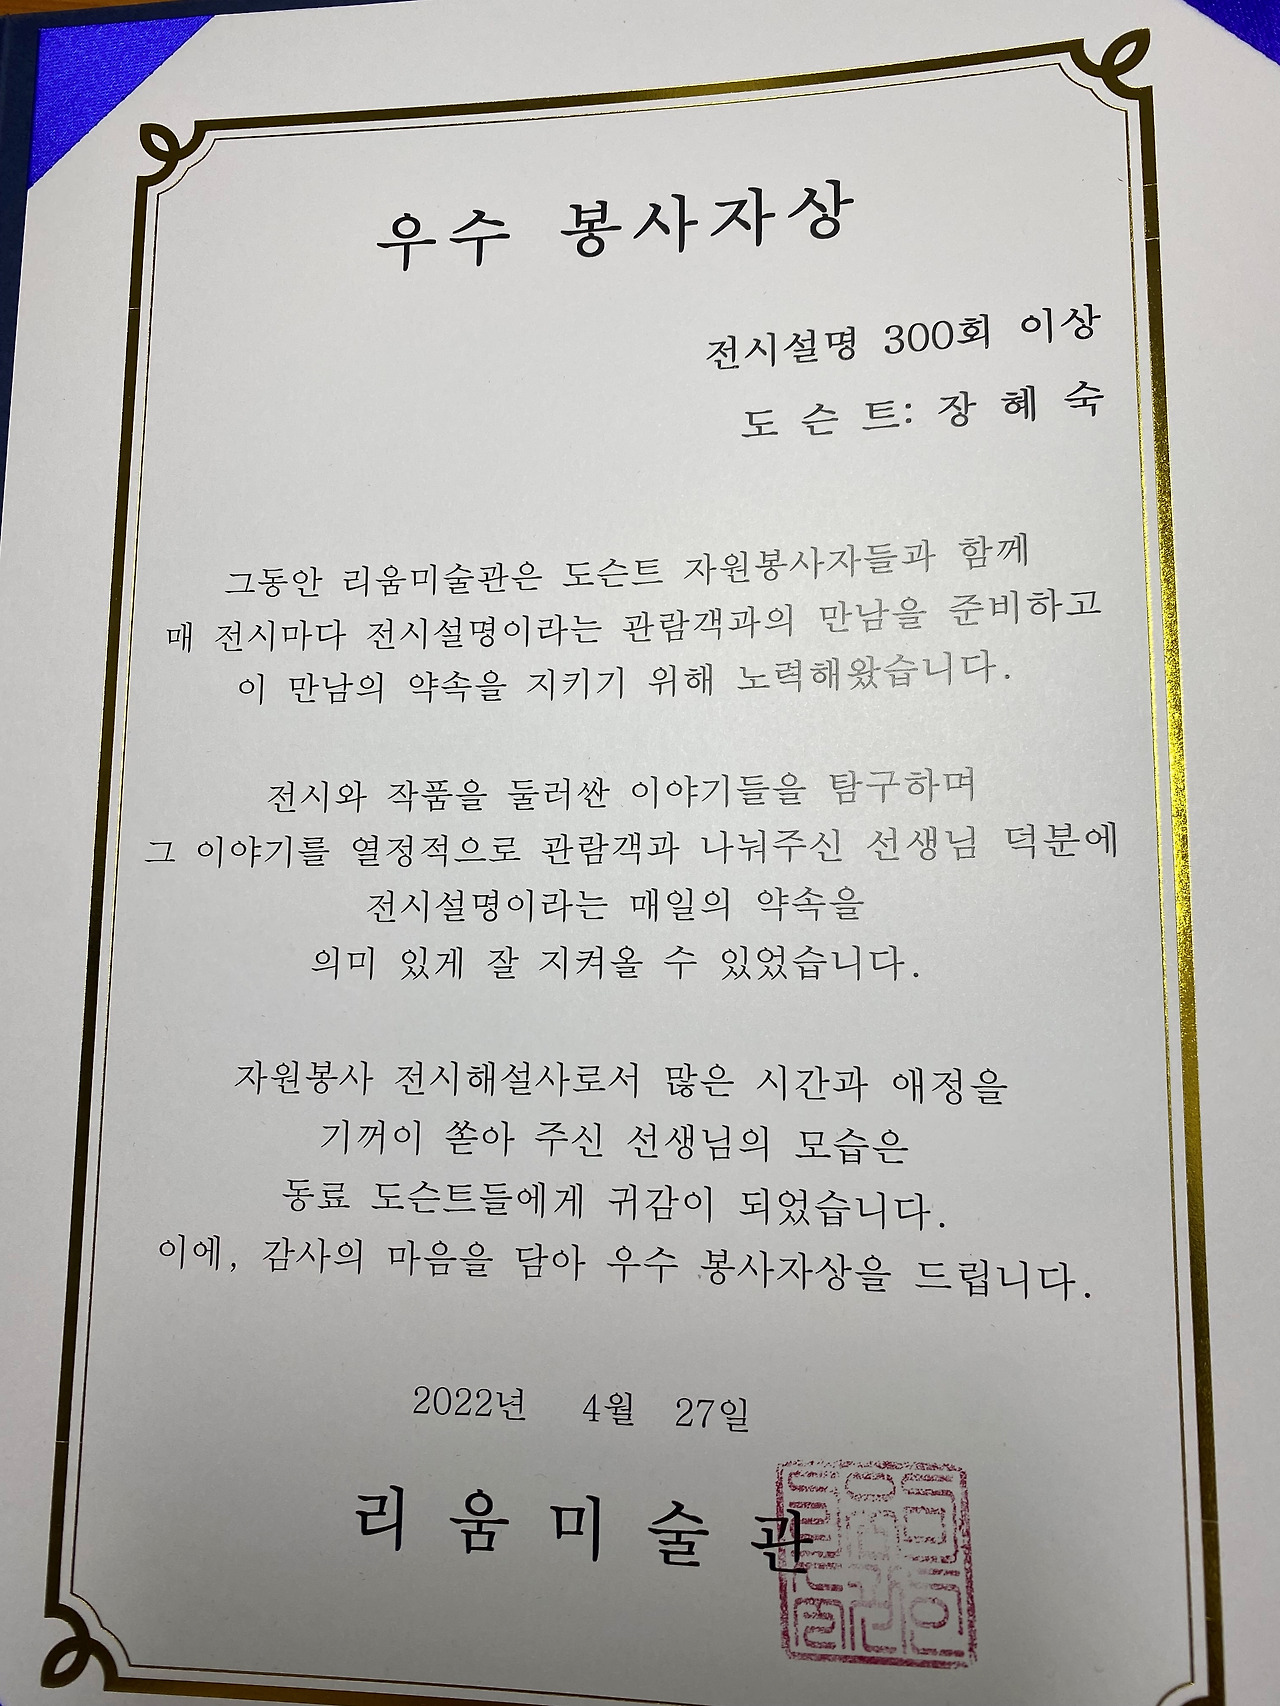 우수 봉사자상
전시설명 300회 이상
도 슨 트: 장 혜 숙
그동안 리움미술관은 도슨트 자원봉사자들과 함께
매 전시마다 전시설명이라는 관람객과의 만남을 준비하고
이 만남의 약속을 지키기 위해 노력해왔습니다.
전시와 작품을 둘러싼 이야기들을 탐구하며
그 이야기를 열정적으로 관람객과 나눠주신 선생님 덕분에
전시설명이라는 매일의 약속을
의미 있게 잘 지켜올 수 있었습니다.
자원봉사 전시해설사로서 많은 시간과 애정을
기꺼이 쏟아 주신 선생님의 모습은
동료 도슨트들에게 귀감이 되었습니다.
이에, 감사의 마음을 담아 우수 봉사자상을 드립니다.
2022년 4월 27일
리 움 미 술 관